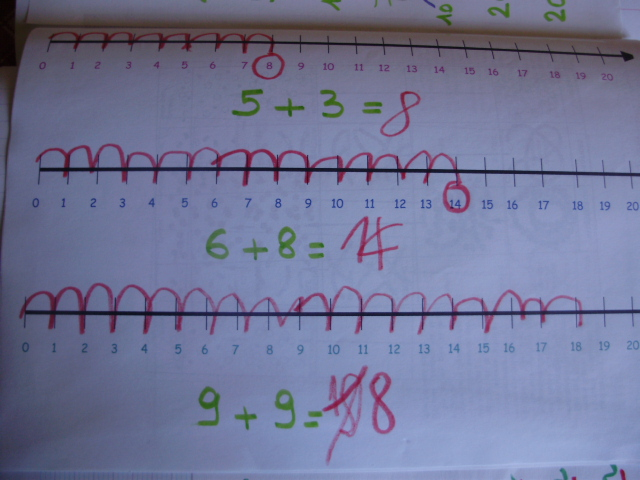 0 1 2 3 4 5 6 7 8 9 10 11 12 13 14 15 16 17 18 19 20
5 + 3 = 8
0 1 2 3 4 5 6 7 8 9 10 11 12 13 14 15 16 17 18 19 20
6 + 8 = 14
0 1 2 3 4 5 6 7 8 9 10 11 12 13 14 15 16 17 18 19 20
9 + 9 = 18